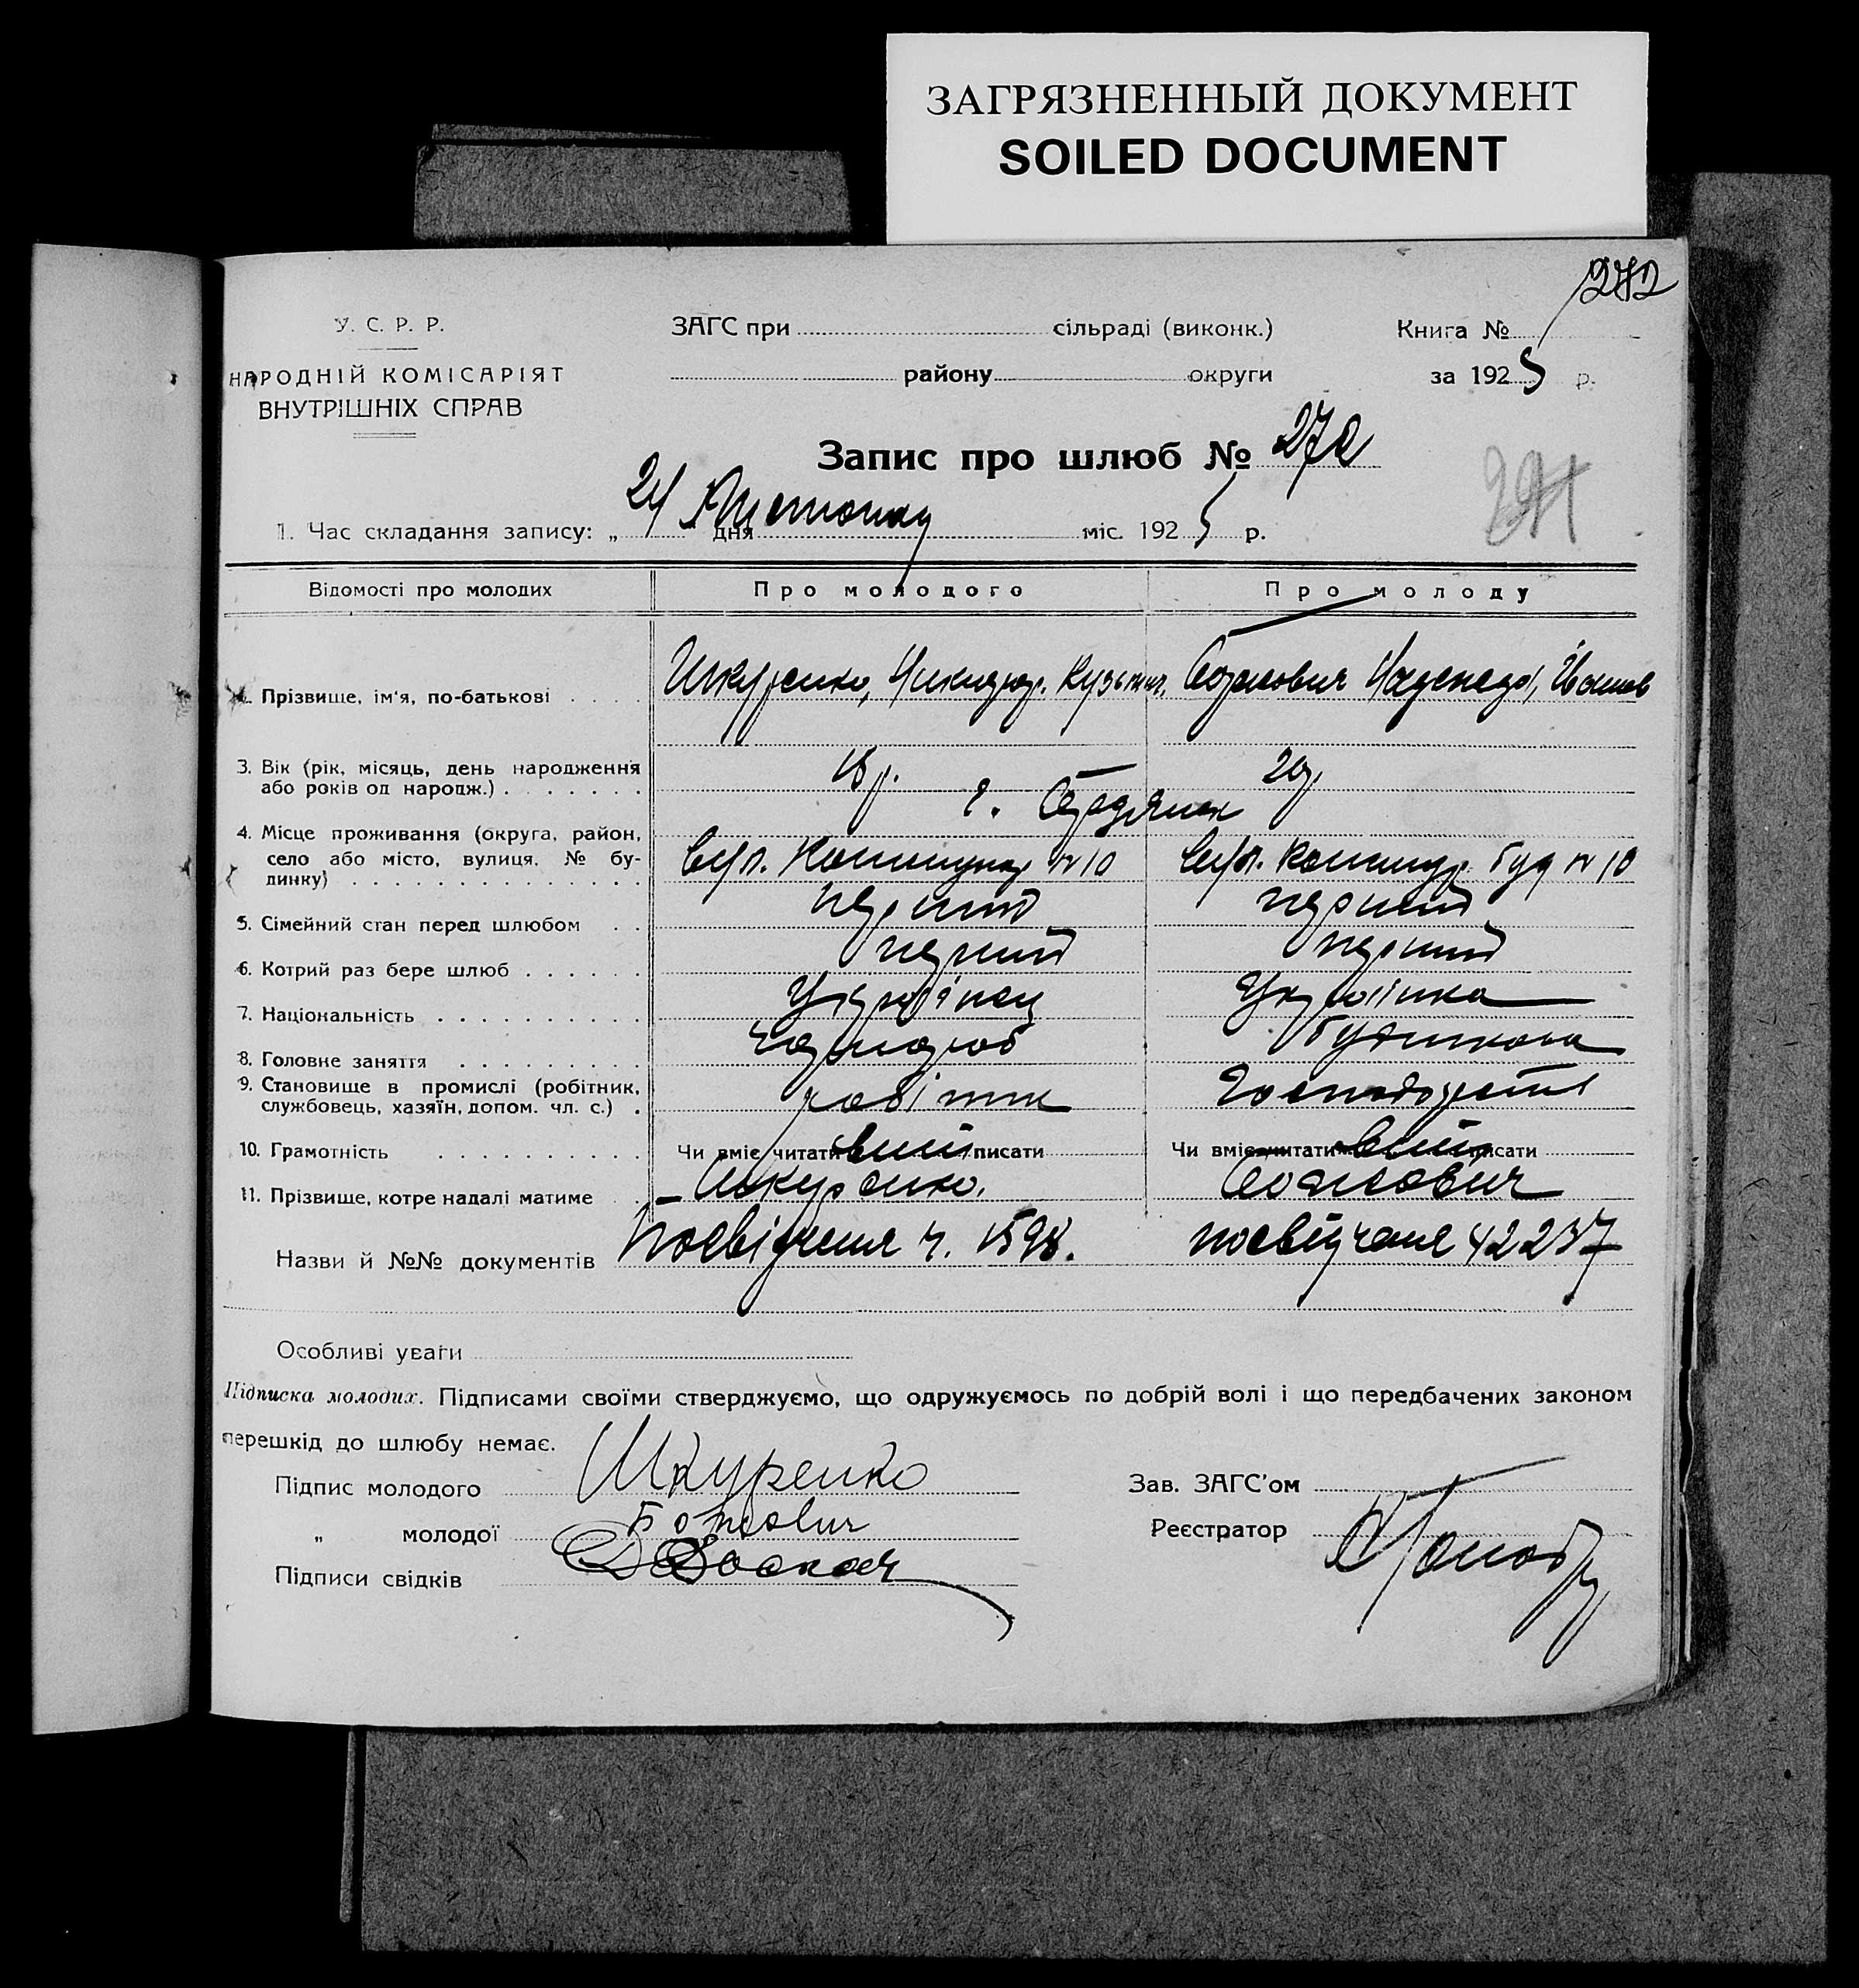 ЗАГРЯЗНЕННЫЙ ДОКУМЕНТ
SOILED DOCUMENT
272
У. С. Р. Р.
НАРОДНІЙ КОМІСАРІЯТ
ВНУТРІШНІХ СПРАВ
ЗАГС при сільраді (виконк.)
району округи
Книга №
за 1925 р.
Запис про шлюб № 272
271
1. Час складання запису: „24 дня Листопад міс. 1925 р.
Відомості про молодих Про молодого Про молоду
2. Прізвище, ім'я, по-батькові Шкуренко, Никидор. Кузьмич. Божович Надежда, Иванов
3. Вік (рік, місяць, день народження 18 р. 20р.
або років од народж.)
4. Місце проживання (округа, район,
село або місто, вулиця, № бу- Вул. Комунар №10 Вул. Комунар буд №10
динку)
5. Сімейний стан перед шлюбом перший перший
6. Котрий раз бере шлюб перший перший
7. Національність Українец Українка
8. Головне заняття Чорнороб
9. Становище в промислі (робітник, робітник господарства
службовець, хазяїн, допом. чл. с.)
10. Грамотність Чи вміє читати вміє писати Чи вміє читати вміє писати
11. Прізвище, котре надалі матиме Шкуренко. Божович
Назви й №№ документів Посвідченя ч. 1598. посвідченя 42237
Особливі уваги
Підписка молодих. Підписами своїми стверджуємо, що одружуємось по добрій волі і що передбачених законом
перешкід до шлюбу немає.
Підпис молодого Шкуренко
„ молодої Божович
Підписи свідків
Зав. ЗАГС'ом
Реєстратор